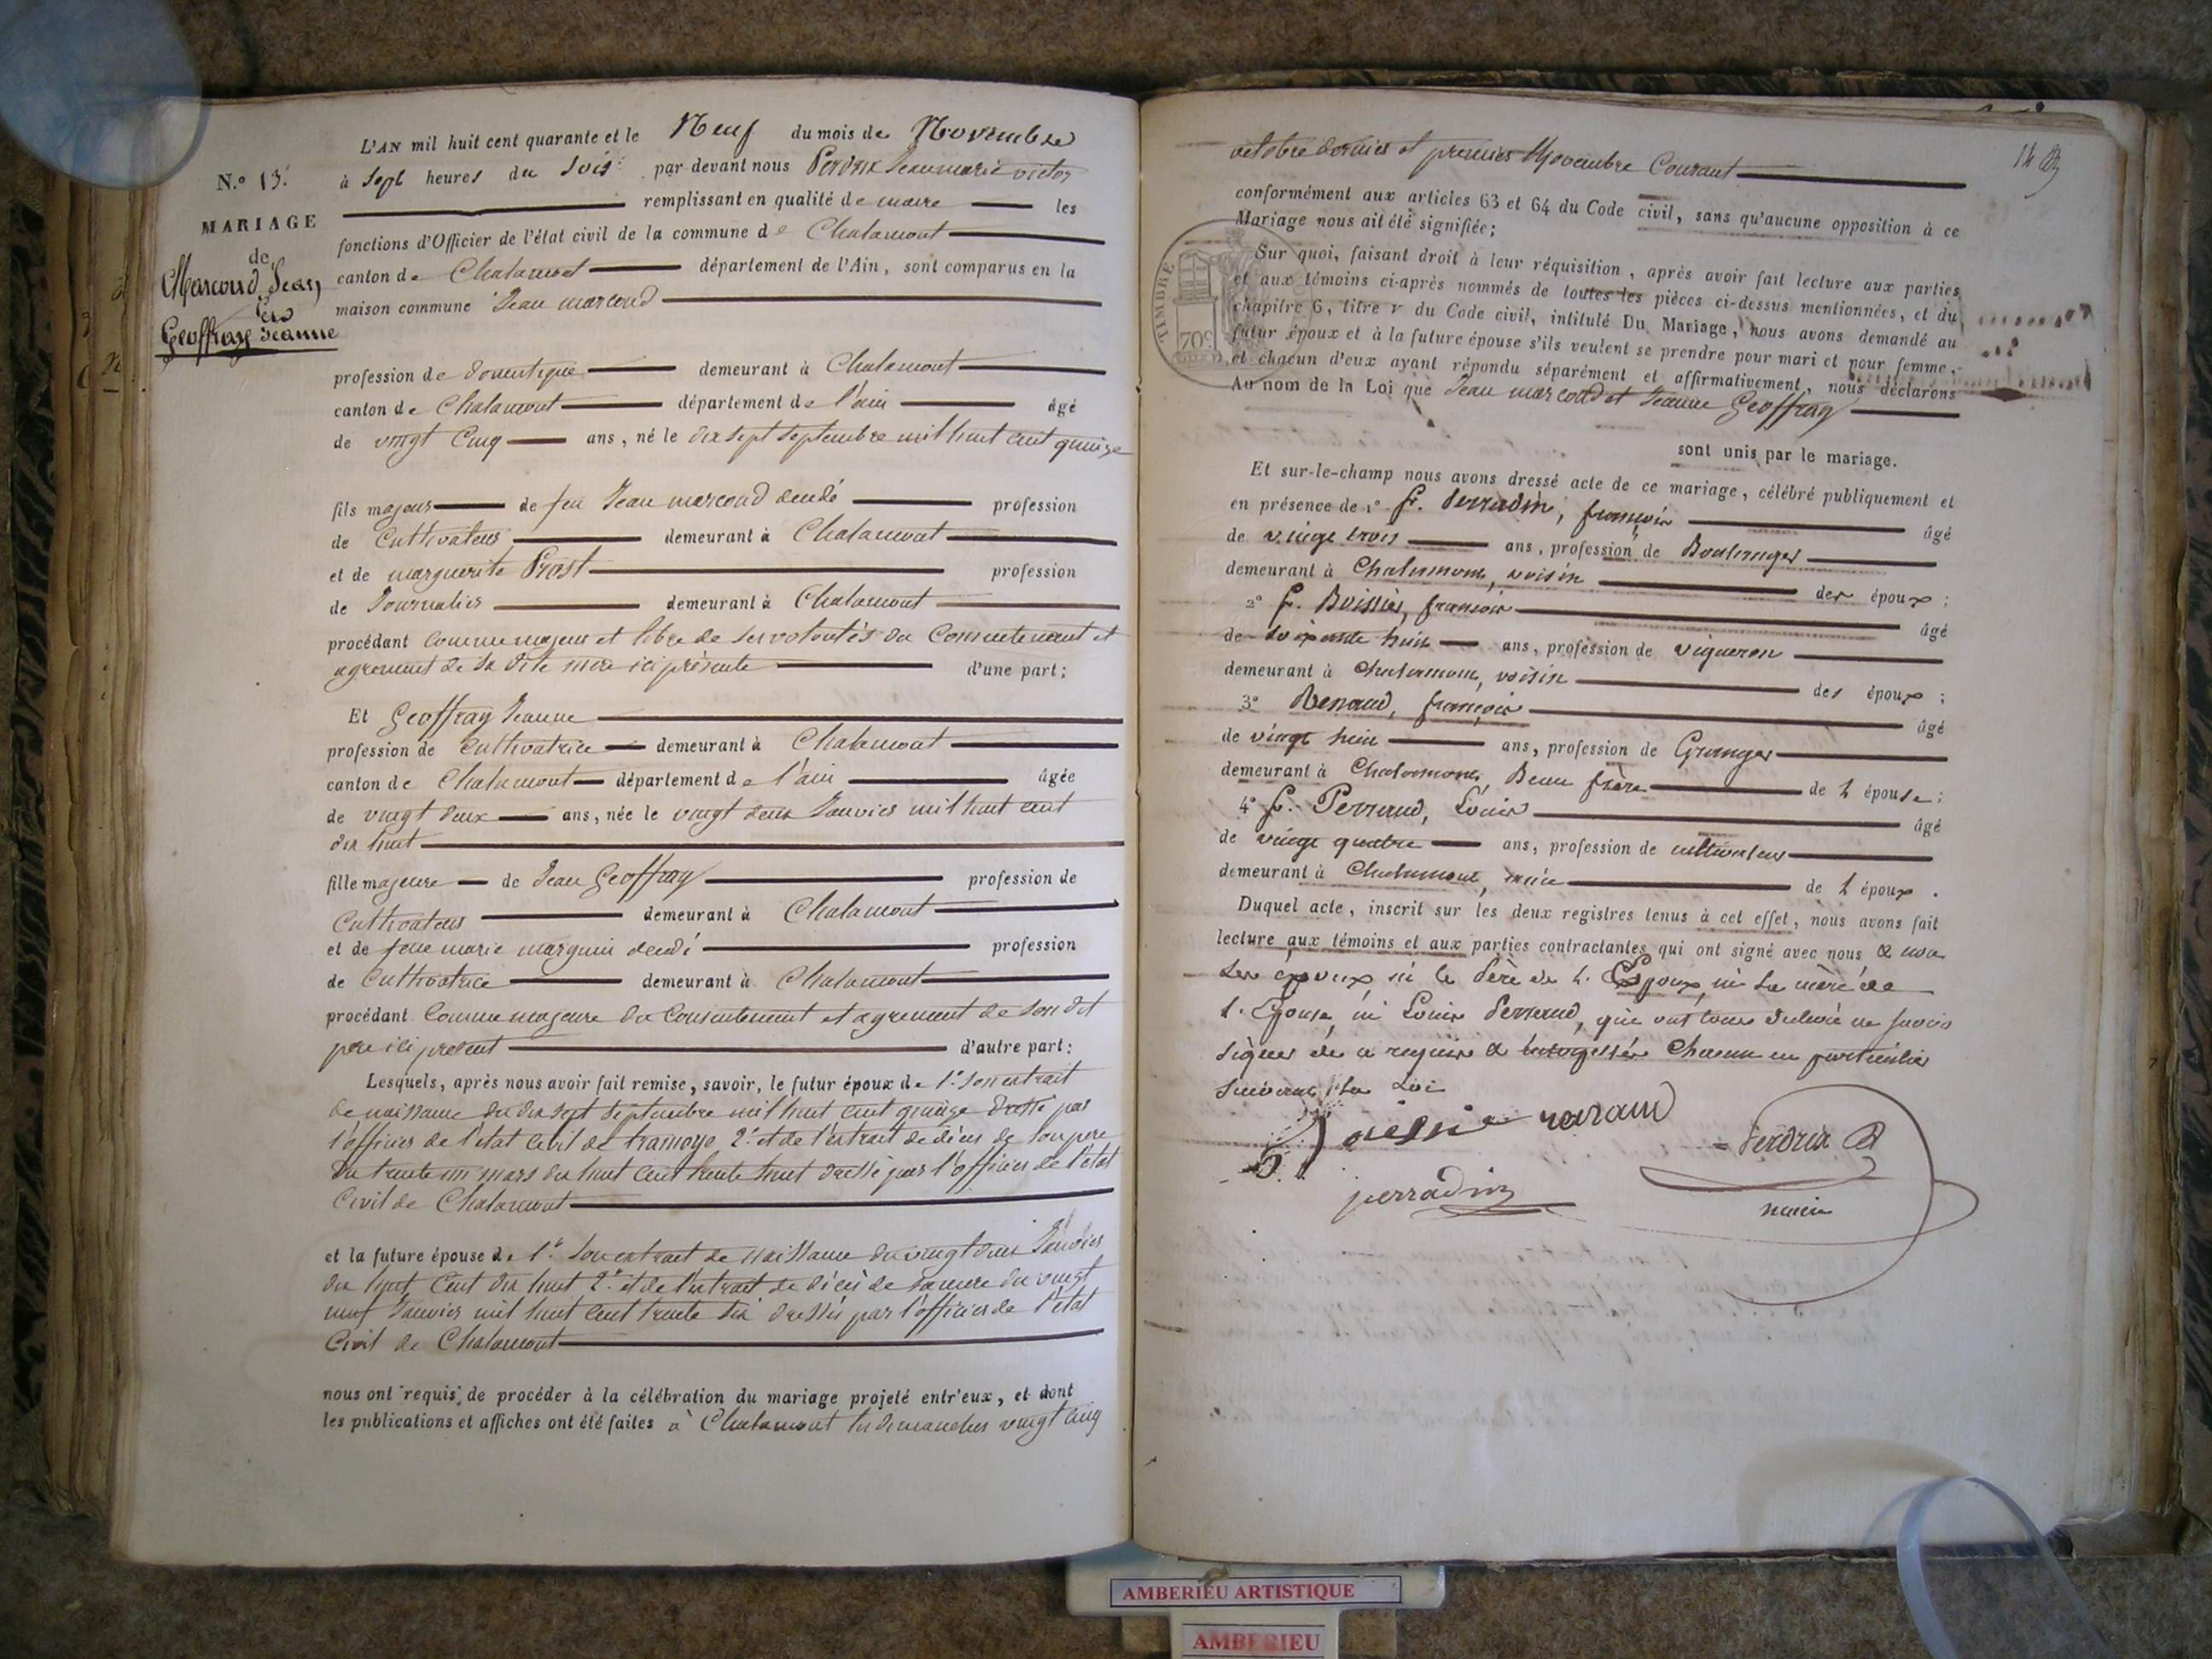 N.º 13.
MARIAGE
de
Marcoud Jean
et
Geoffray Jeanne
L'AN mil huit cent quarante et le Neuf du mois de Novembre
à Sept heures du Soir par devant nous Perdrix Jean marie victor
remplissant en qualité de maire les
fonctions d'Officier de l'état civil de la commune de Chalamont
canton de Chalamont département de l'Ain, sont comparus en la
maison commune Jean marcoud
profession de domestique demeurant à Chalamont
canton de Chalamont département de l'ain âgé
de vingt Cinq ans, né le dix sept Septembre mil huit cent quinze
fils majeur de feu Jean marcoud décédé profession
de Cultivateur demeurant à Chalamont
et de marguerite Prost profession
de Journalier demeurant à Chalamont
procédant comme majeur et libre de ses volontés du Consentement et
agrement de sa dite mere ici présente d'une part;
Et Geoffray Jeanne
profession de Cultivatrice demeurant à Chalamont
canton de Chalamont département de l'ain âgée
de vingt deux ans, née le vingt deux Janvier mil huit cent
dix huit
fille majeure de Jean Geoffray profession de
Cultivateur demeurant à Chalamont
et de feue marie marguin décédé profession
de Cultivatrice demeurant à Chalamont
procédant Comme majeure du Consentement et agrement de son dit
pere ici présent d'autre part:
Lesquels, après nous avoir fait remise, savoir, le futur époux de 1.º Son extrait
de naissance du dix sept Septembre mil huit cent quinze dressé par
l'officier de l'état Civil de tramoye 2.º et de l'extrait de décès de son pere
du trente un mars dix huit cent trente huit dressé par l'officier de l'état
Civil de Chalamont
et la future épouse de 1.º Son extrait de naissance du vingt deux Janvier
dix huit Cent dix huit 2.º et de l'extrait de décès de sa mere du vingt
neuf Janvier mil huit cent trente six dressés par l'officier de l'état
Civil de Chalamont
nous ont requis de procéder à la célébration du mariage projeté entr'eux, et dont
les publications et affiches ont été faites à Chalamont les dimanches vingt cinq
octobre dernier et premier Novembre Courant
conformément aux articles 63 et 64 du Code civil, sans qu'aucune opposition à ce
Mariage nous ait été signifiée;
Sur quoi, faisant droit à leur réquisition, après avoir fait lecture aux parties
et aux témoins ci-après nommés de toutes les pièces ci-dessus mentionnées, et du
chapitre 6, titre v du Code civil, intitulé Du Mariage, nous avons demandé au
futur époux et à la future épouse s'ils veulent se prendre pour mari et pour femme,
et chacun d'eux ayant répondu séparément et affirmativement, nous déclarons
Au nom de la Loi que Jean marcoud et Jeanne Geoffray
sont unis par le mariage.
TIMBRE
70c
Et sur-le-champ nous avons dressé acte de ce mariage, célébré publiquement et
en présence de 1º S. Perradin, françois âgé
de vingt trois ans, profession de Boulanger
demeurant à Chalamont, voisin des époux;
2º S. Boissier, françois âgé
de soixante huit ans, profession de vigneron
demeurant à Chalamont, voisin des époux;
3º Renaud, françois âgé
de vingt huit ans, profession de Granger
demeurant à Chalamont, Beau frère de l'épouse;
4º S. Perraud, Louis âgé
de vingt quatre ans, profession de cultivateur
demeurant à Chalamont, ami de l'époux.
Duquel acte, inscrit sur les deux registres tenus à cet effet, nous avons fait
lecture aux témoins et aux parties contractantes qui ont signé avec nous & non
les époux, ni le Père de l. Epoux, ni La mère de
l. Epouse, ni Louis Perraud, qui ont tous déclaré ne savoir
signer de ce requis & interpellés Chacun en particulier
suivant la Loi
Boissie renaud
Perdrix
perradin
maire
AMBERIEU ARTISTIQUE
AMBERIEU